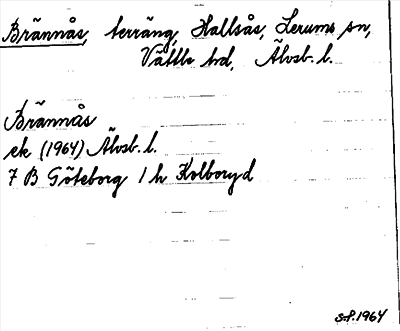 Brännås, terräng, Hallsås, Lerums sn,
Vättle hd, Älvsb. l.
Brännås
ek (1964) Älvsb. l.
7 B Göteborg 1 h Kolboryd
S.P. 1964